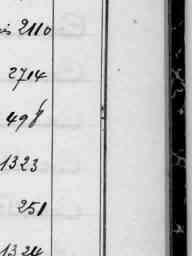 is 2110
2714
498
1323
251
1324